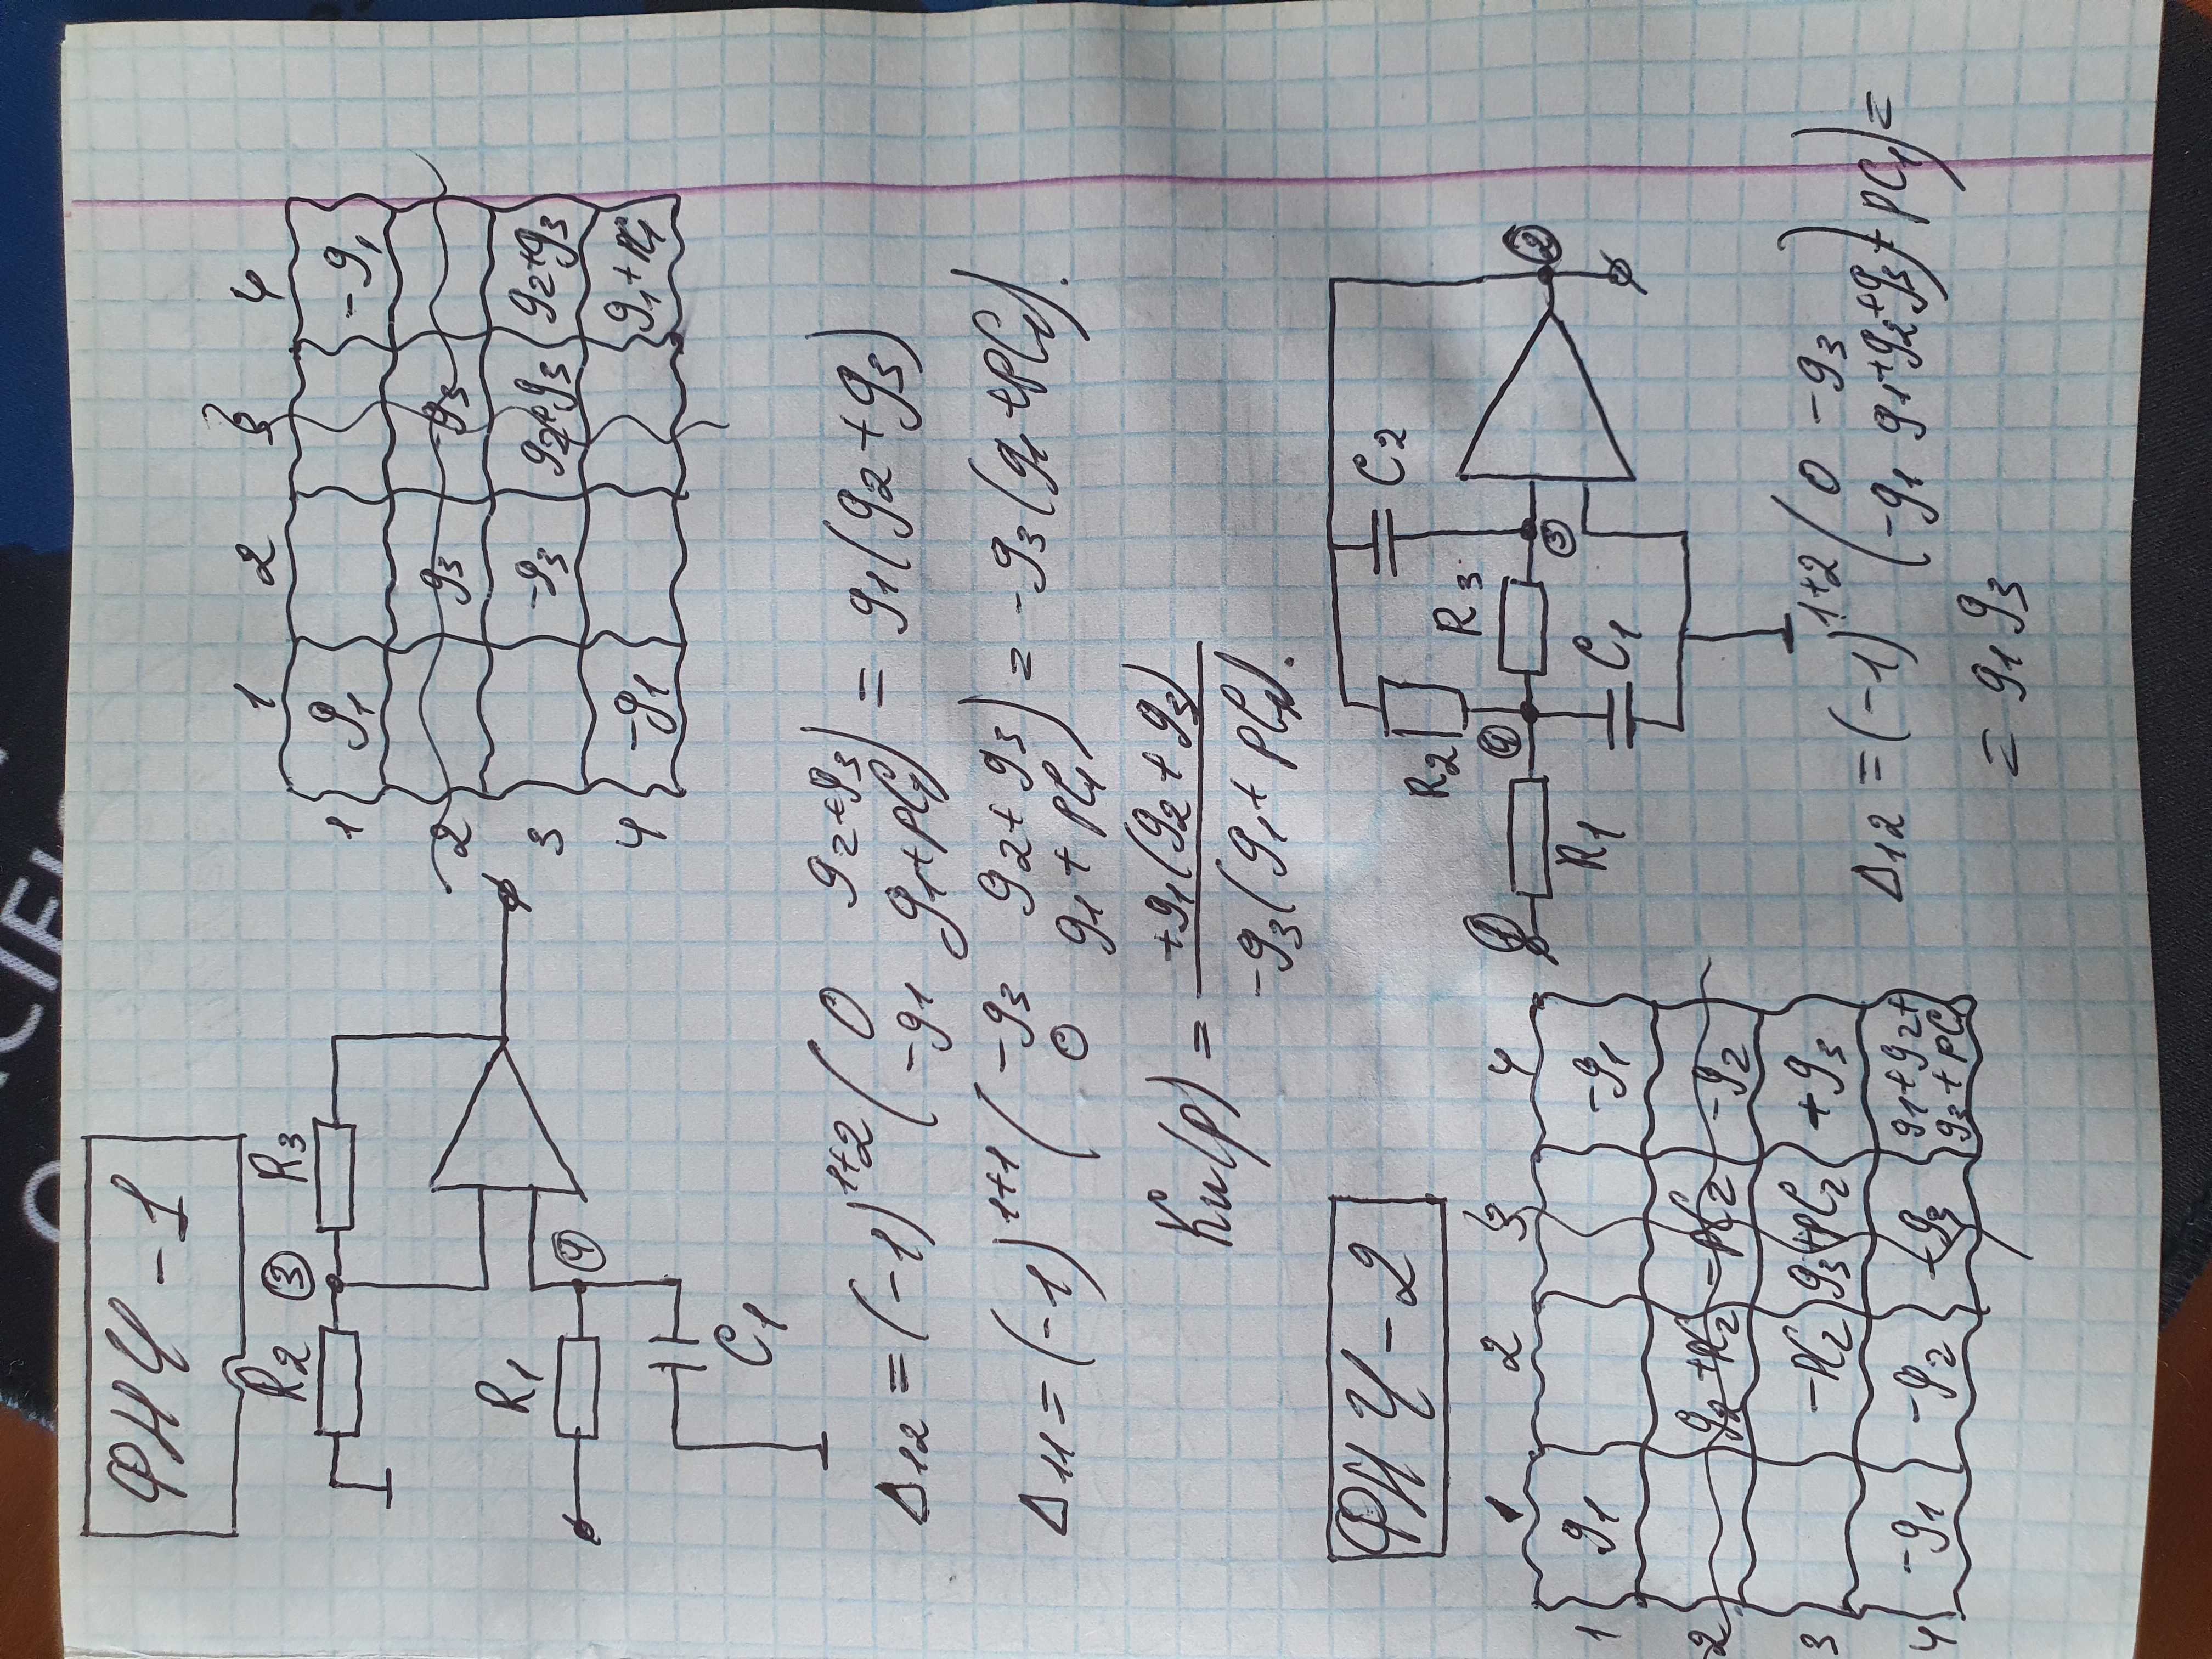 ФНЧ-1
R2 ③ R3
R1
④
C1
1 2 3 4
1 g1 -g1
2 g3 -g3
3 -g3 g2+g3 g2+g3
4 -g1 g1+pC1
Δ12 = (-1)^1+2 ( 0 g2+g3
-g1 g1+pC1 ) = g1(g2+g3)
Δ11 = (-1)^1+1 ( -g3 g2+g3
0 g1+pC1 ) = -g3(g1+pC1).
Ku(p) = +g1(g2+g3)
-g3(g1+pC1).
ФНЧ-2
C2
R2
R3
① ④ ③ ②
R1
C1
1 2 3 4
1 g1 -g1
2 g2+pC2 -pC2 -g2
3 -pC2 g3+pC2 +g3
4 -g1 -g2 -g3 g1+g2+
g3+pC1
Δ12 = (-1)^1+2 ( 0 -g3
-g1 g1+g2+g3+pC1 ) =
= g1g3